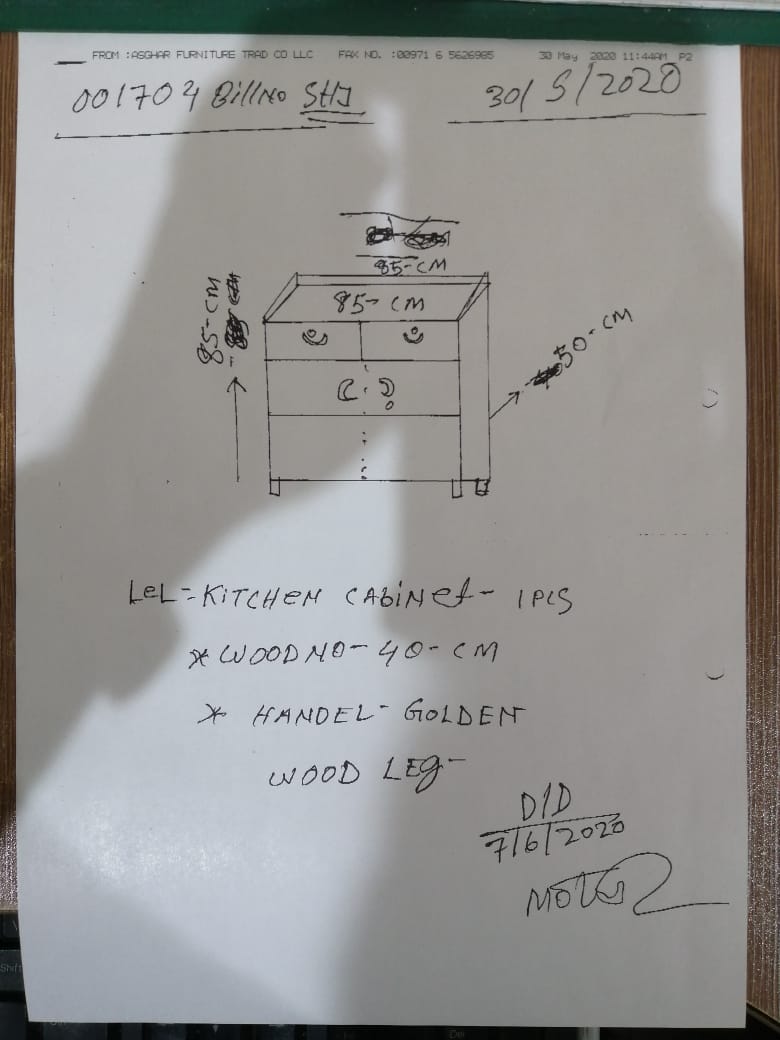 FROM :ASGHAR FURNITURE TRAD CO LLC FAX NO. :00971 6 5626985 30 May 2020 11:44AM P2
001704 Bill No SHJ 30/5/2020
85-CM
85-CM
85-CM
50-CM
LeL=KITCHEN CABINET- 1PCS
* WOOD NO- 40-CM
* HANDEL- GOLDEN
WOOD LEG-
D/D
7/6/2020